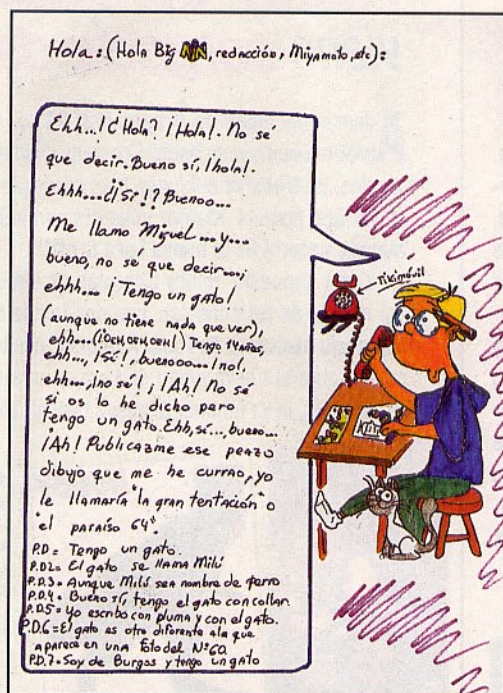 Hola:(Hola Big N, redacción, Miyamoto, etc):
Ehh...!¿Hola? ¡Hola!. No sé
que decir. Bueno sí, ¡hola!.
Ehhh...¿¡Sí!? Buenoo...
Me llamo Miguel... y...
bueno, no sé que decir...;
ehhh... ¡Tengo un gato!
(aunque no tiene nada que ver),
ehh...(¡OEH,OEH,OEH!) Tengo 14 años,
ehh..., ¡Sé!, buenooo... ¡no!,
ehh..., ¡no sé! ; ¡Ah! No sé
si os lo he dicho pero
tengo un gato. Ehh, sí..., bueno...
¡Ah! Publicazme ese peazo
dibujo que me he currao, yo
le llamaría "la gran tentación" o
"el paraíso 64".
P.D = Tengo un gato.
P.D2= El gato se llama Milú
P.D.3= Aunque Milú sea nombre de perro
P.D.4= Bueno sí, tengo el gato con collar.
P.D.5= yo escribo con pluma y con el gato.
P.D.6= El gato es otro diferente a la que
aparece en una foto del Nº60.
P.D.7= Soy de Burgos y tengo un gato
Tikimóvil